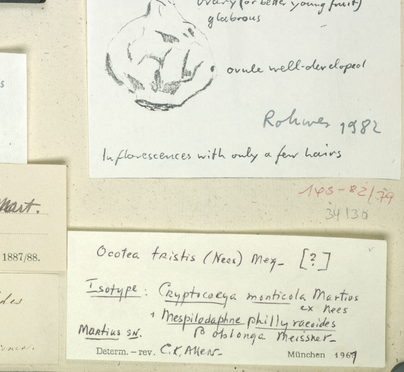 ovary (or better young fruit)
glabrous
ovule well-developed
Rohwer 1982
Inflorescences with only a few hairs
145-82/79
34/30
Mart.
1887/88.
Ocotea tristis (Nees) Mez - [?]
Isotype: Cryptocarya monticola Martius
ex Nees
+ Mespilodaphne phillyraeoides
β oblonga Meissner -
Martius sn.
Determ. - rev. C.K. Allen
München 1967